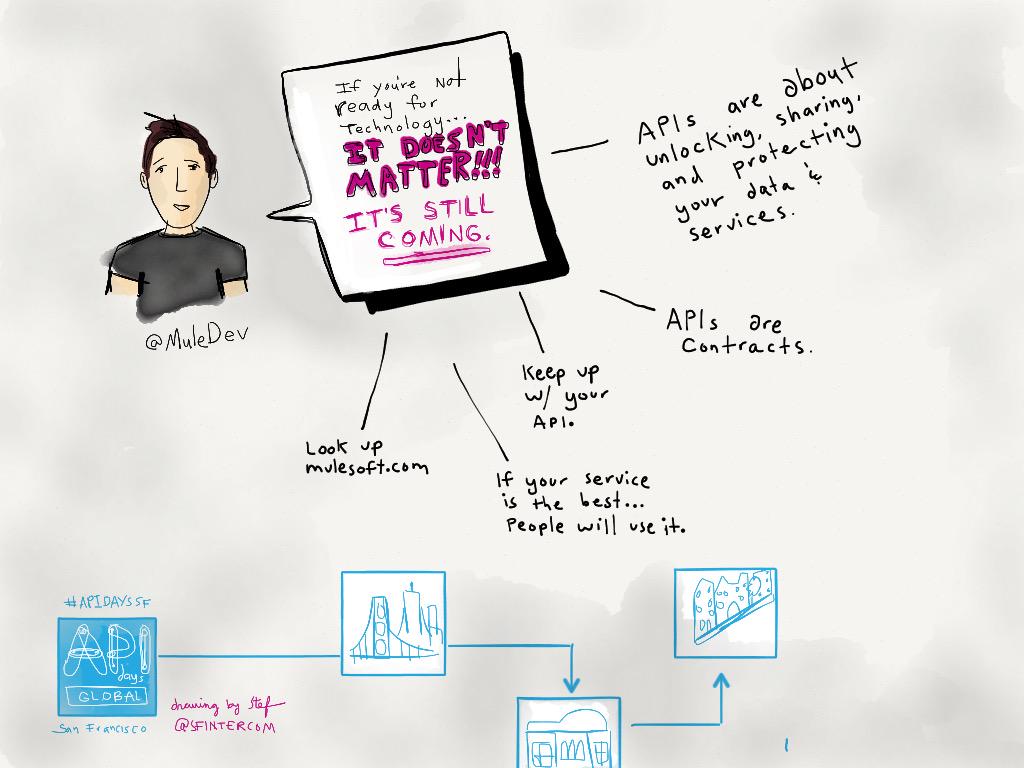 If you're Not
ready for
Technology...
IT DOESN'T
MATTER!!!
IT'S STILL
COMING.
@MuleDev
APIs are about
unlocking, sharing,
and protecting
your data &
services.
APIs are
Contracts.
Keep up
w/ your
API.
Look up
mulesoft.com
If your service
is the best...
People will use it.
#APIDAYSSF
API
days
GLOBAL
San Francisco
drawing by Stef
@SFINTERCOM